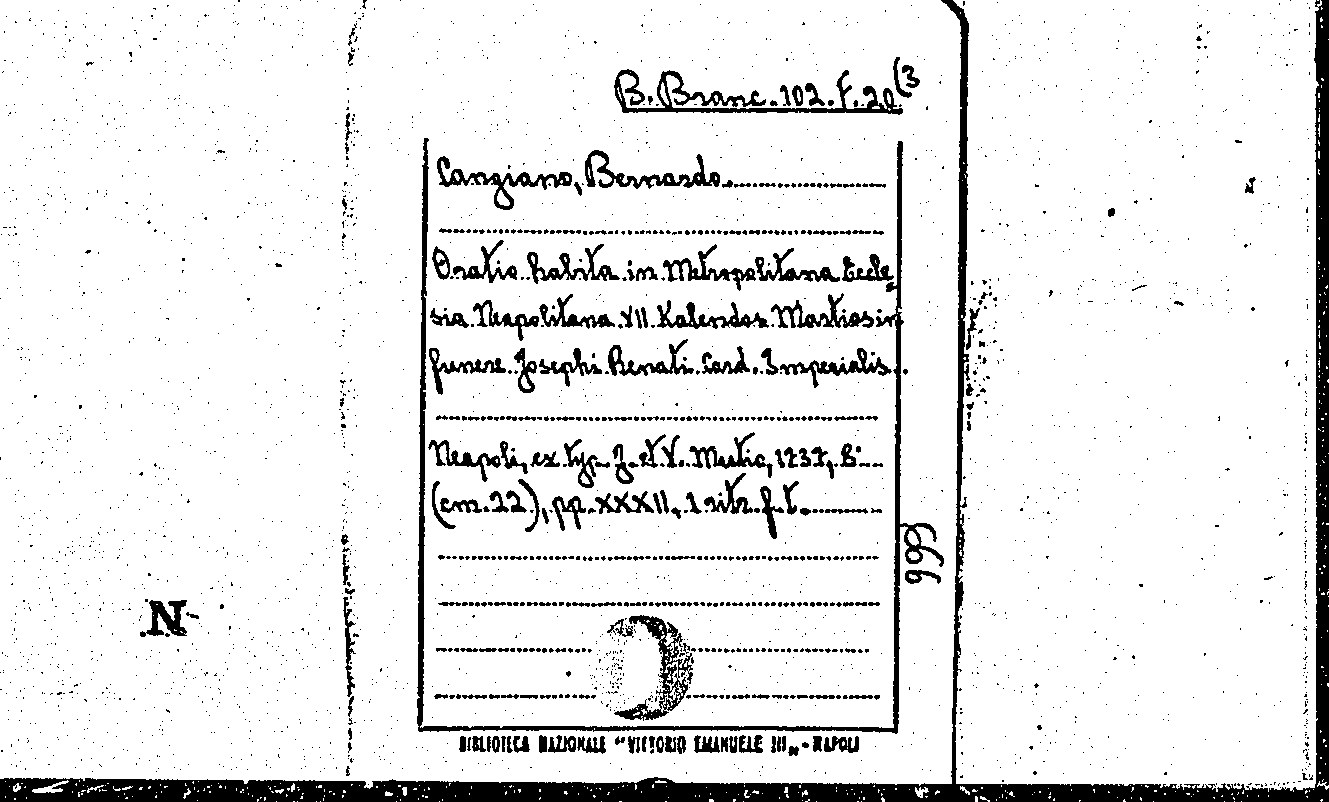 B. Branc. 102. F. 20 (3
Cangiano, Bernardo.
Oratio habita in Metropolitana Eccle=
sia Neapolitana XII Kalendas Martias in
funere Josephi Renati Card. Imperialis.
Neapoli, ex typ. J. et V. Mutio, 1737, 8°
(cm. 22), pp. XXXII, 1 ritr. f. t.
666
N
BIBLIOTECA NAZIONALE "VITTORIO EMANUELE III„ - NAPOLI